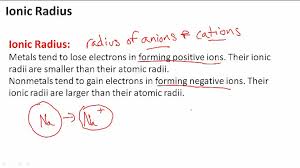 Ionic Radius
Ionic Radius: radius of anions & cations
Metals tend to lose electrons in forming positive ions. Their ionic
radii are smaller than their atomic radii.
Nonmetals tend to gain electrons in forming negative ions. Their
ionic radii are larger than their atomic radii.
Na → Na+